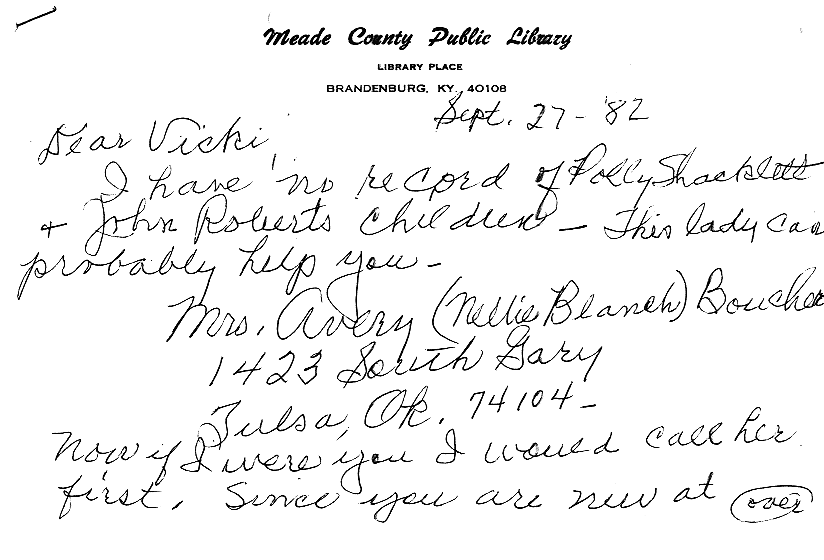 Meade County Public Library
LIBRARY PLACE
BRANDENBURG, KY. 40108
Sept. 27-'82
Dear Vicki,
I have no record of Polly Shacklett
+ John Roberts children - This lady can
probably help you -
Mrs. Avery (Nellie Blanch) Boucher
1423 South Gary
Tulsa, Ok. 74104-
Now if I were you I would call her
first, Since you are new at (over)